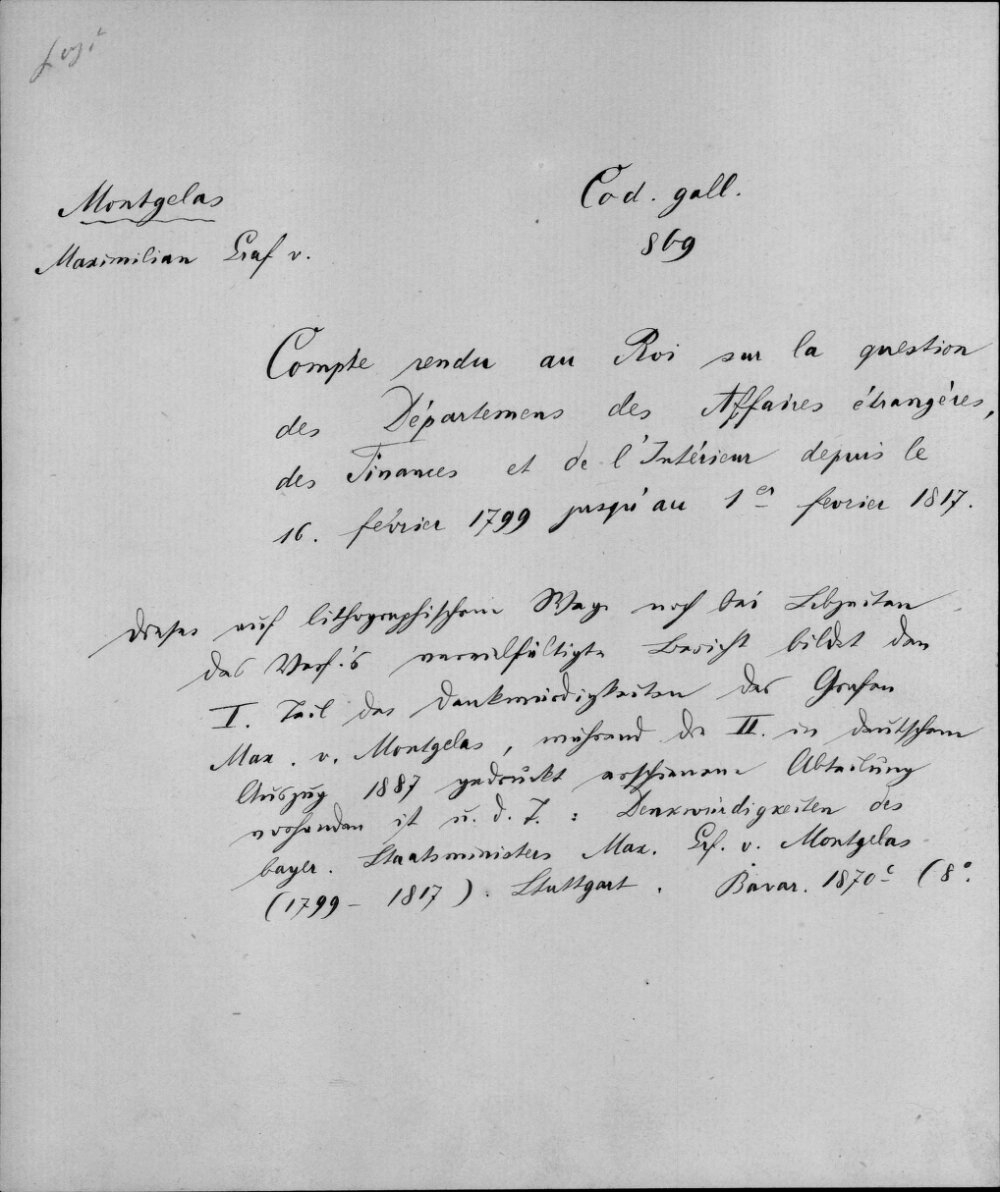 Montgelas
Maximilian Graf v.
Cod. gall.
869
Compte rendu au Roi sur la question
des Départemens des Affaires étrangéres,
des Finances et de l'Intérieur depuis le
16. février 1799 jusqu'au 1er fevrier 1817.
Dieser auf lithographischem Wege noch bei Lebzeiten
des Verf.'s vervielfältigte Bericht bildet den
I. Teil der Denkwürdigkeiten des Grafen
Max. v. Montgelas, während die II. in deutschem
Auszug 1887 gedruckt erschienene Abteilung
vorhanden ist u. d. T.: Denkwürdigkeiten des
bayer. Staatsministers Max. Grf. v. Montgelas
(1799 - 1817). Stuttgart. Bavar. 1870c (8°.